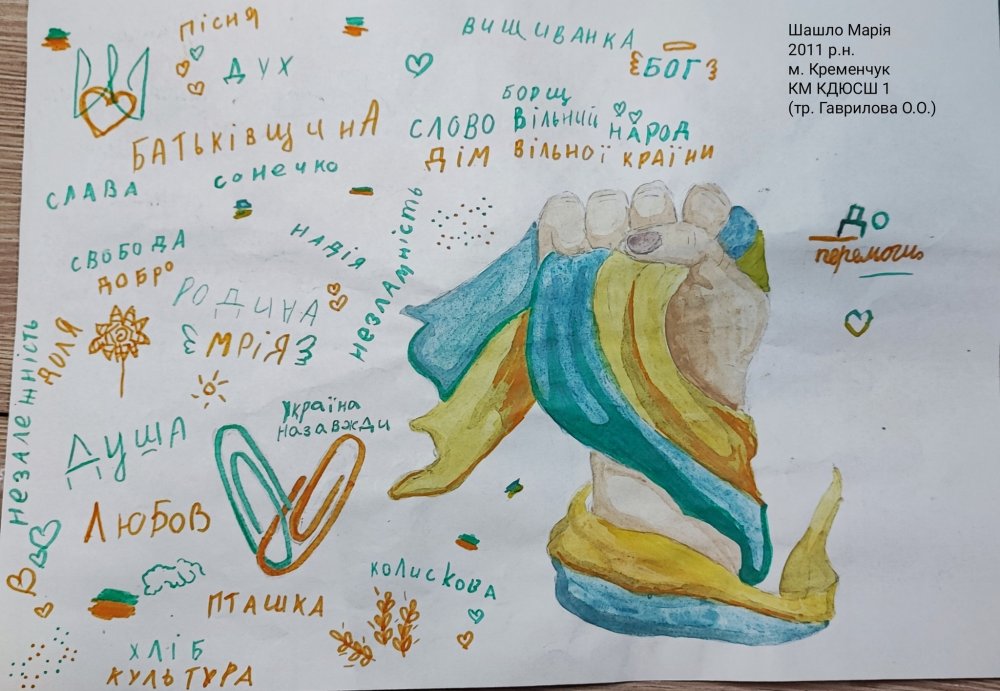 пісня
ВИЩИВАНКА
Шашло Марія
2011 р.н.
м. Кременчук
КМ КДЮСШ 1
(тр. Гаврилова О.О.)
ДУХ
БОГ
БОРЩ
БАТЬКІВЩИНА
СЛОВО ВІЛЬНИЙ НАРОД
ДІМ ВІЛЬНОЇ КРАЇНИ
СЛАВА
сонечко
НЕЗЛАМНІСТЬ
ДО
перемоги
СВОБОДА
НАДІЯ
ДОБРО
РОДИНА
ДОЛЯ
МРІЯ
НЕЗАЛЕЖНІСТЬ
Україна
назавжди
ДУША
ЛЮБОВ
КОЛИСКОВА
ПТАШКА
ХЛІБ
КУЛЬТУРА